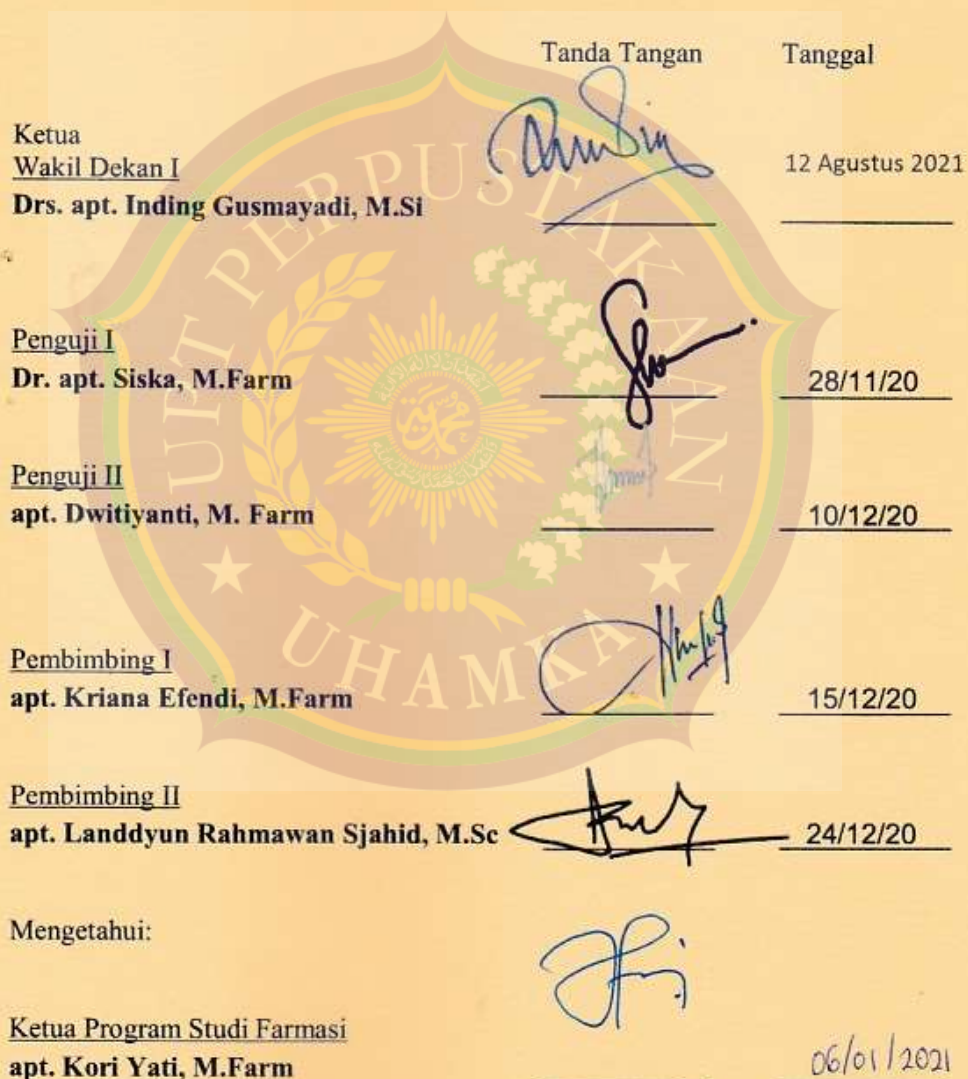 Tanda Tangan Tanggal
Ketua
Wakil Dekan I 12 Agustus 2021
Drs. apt. Inding Gusmayadi, M.Si
Penguji I
Dr. apt. Siska, M.Farm 28/11/20
Penguji II
apt. Dwitiyanti, M. Farm 10/12/20
Pembimbing I
apt. Kriana Efendi, M.Farm 15/12/20
Pembimbing II
apt. Landdyun Rahmawan Sjahid, M.Sc 24/12/20
Mengetahui:
Ketua Program Studi Farmasi
apt. Kori Yati, M.Farm 06/01/2021
UPT PERPUSTAKAAN
UHAMKA